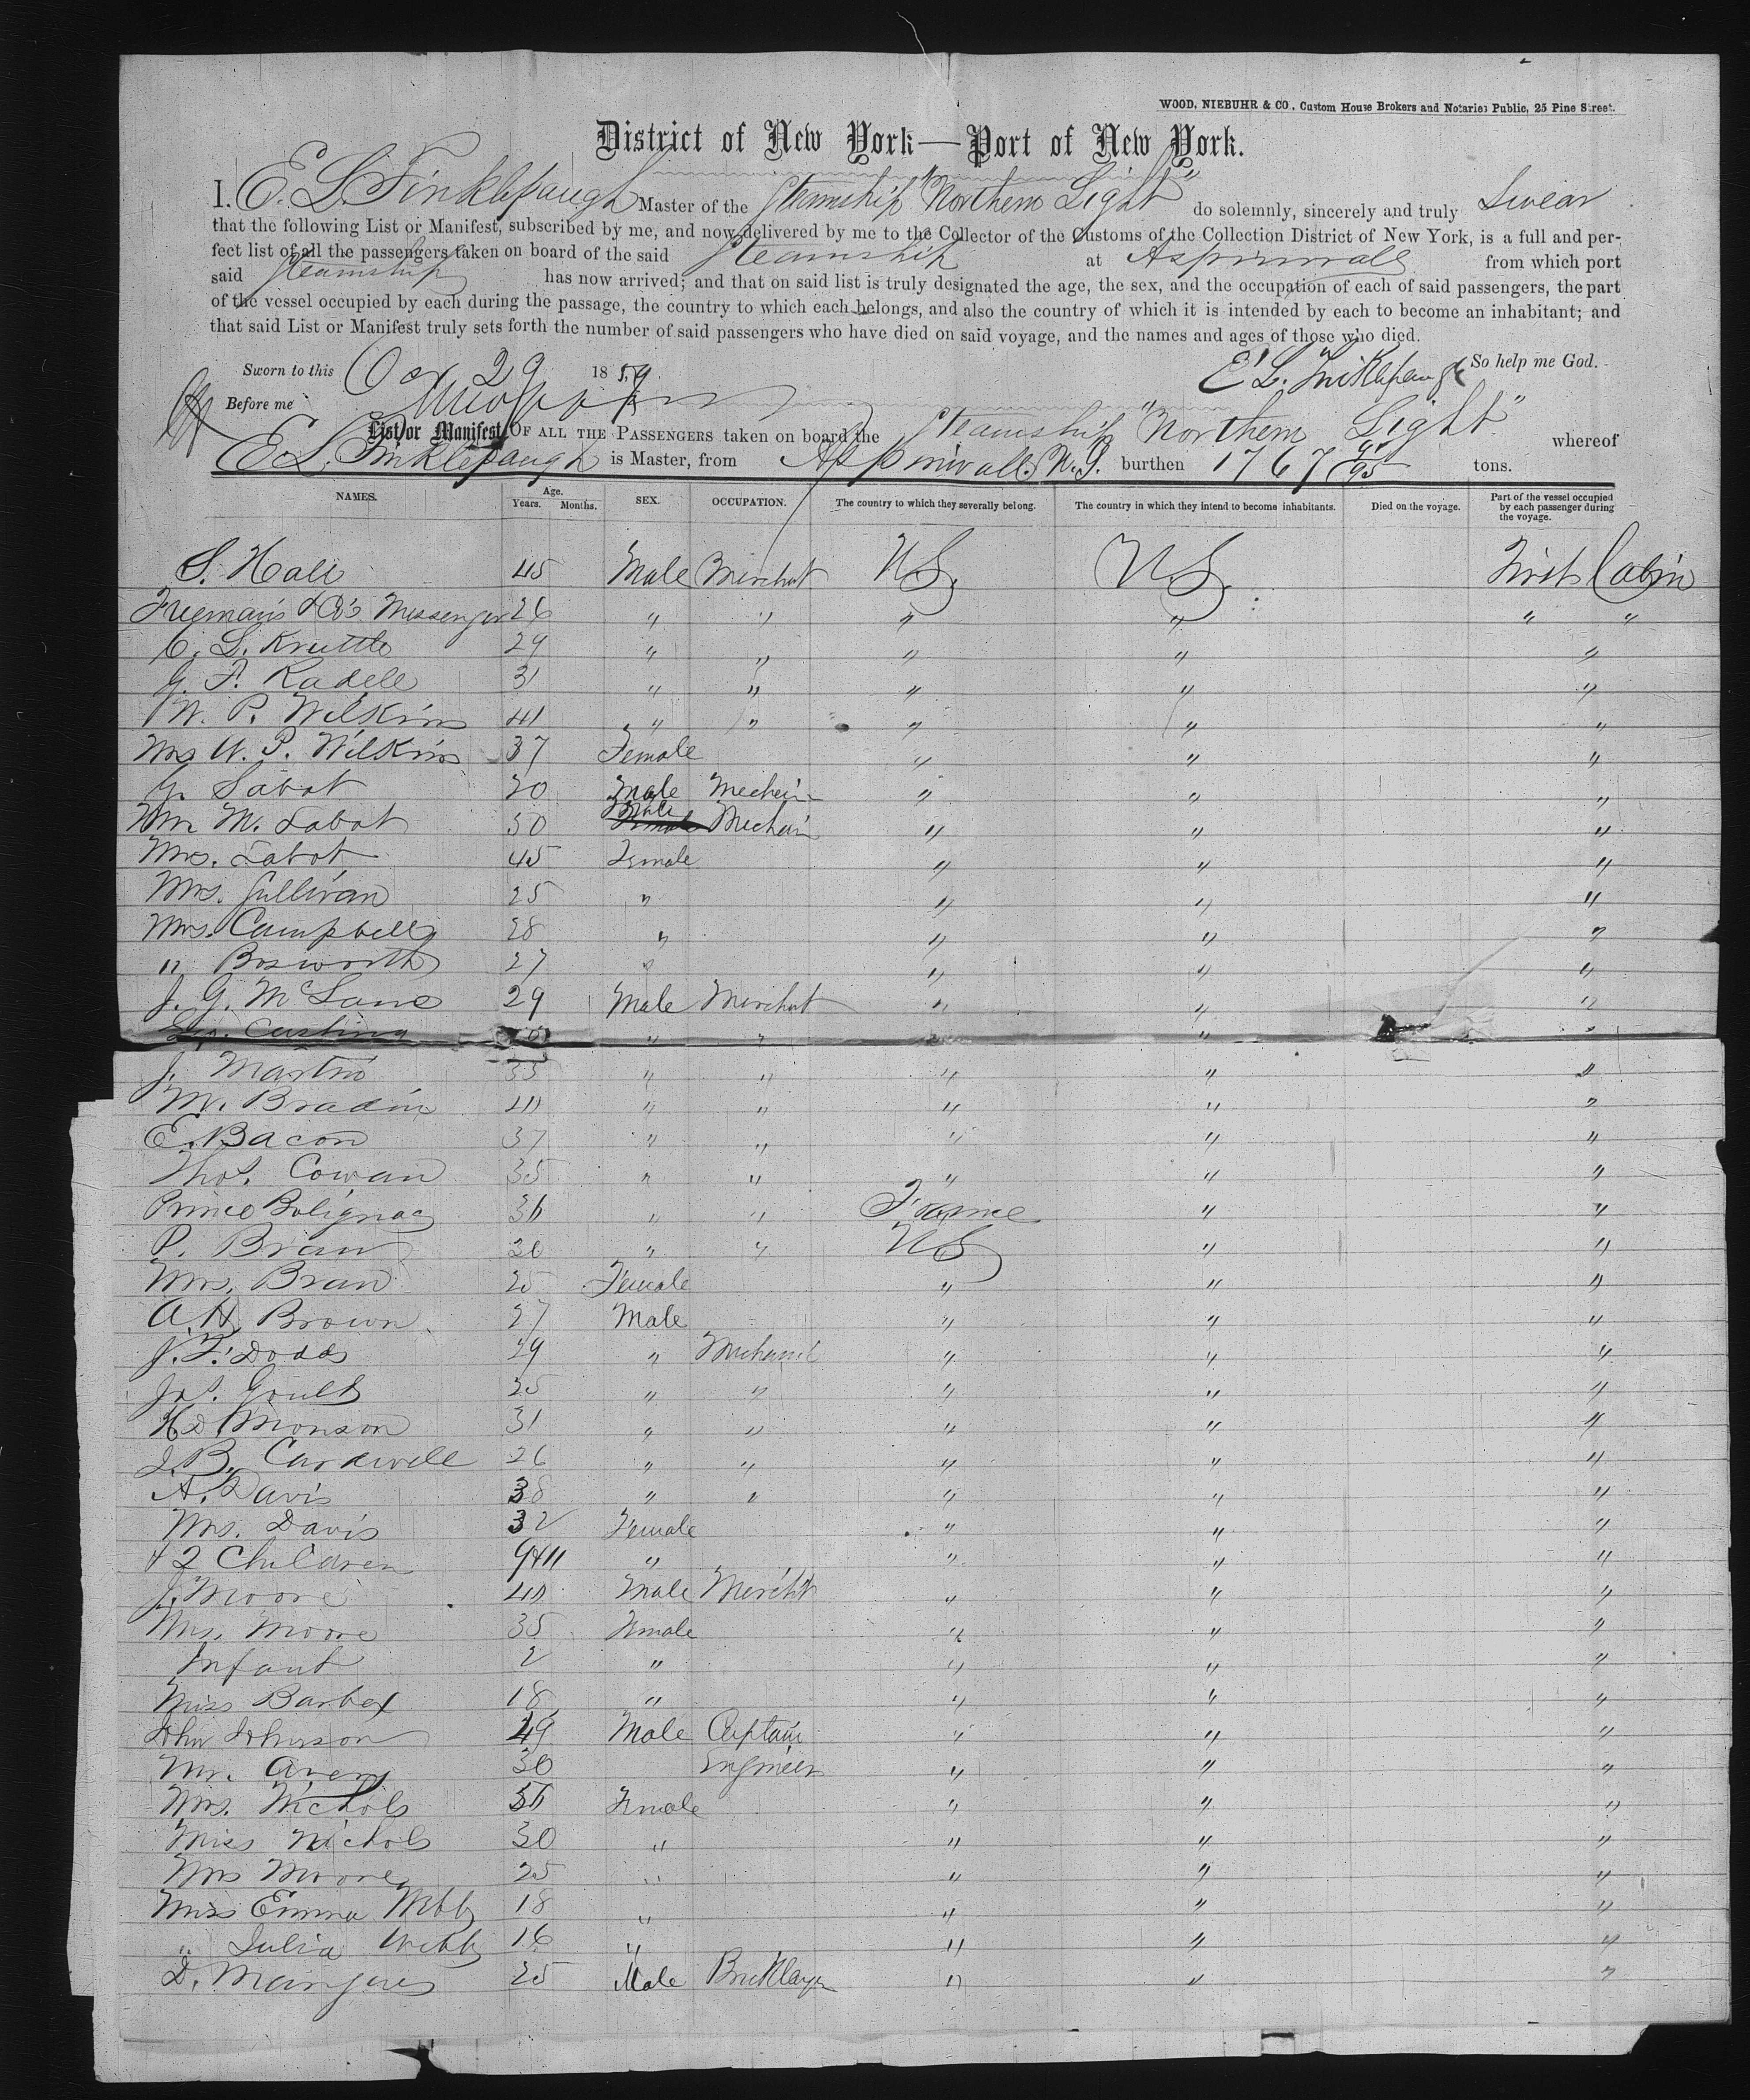 WOOD, NIEBUHR & CO., Custom House Brokers and Notaries Public, 25 Pine Street.
District of New York—Port of New York.
I. E. L. Finklepaugh Master of the Steamship "Northern Light" do solemnly, sincerely and truly Swear
that the following List or Manifest, subscribed by me, and now delivered by me to the Collector of the Customs of the Collection District of New York, is a full and per-
fect list of all the passengers taken on board of the said Steamship at Aspinwall from which port
said Steamship has now arrived; and that on said list is truly designated the age, the sex, and the occupation of each of said passengers, the part
of the vessel occupied by each during the passage, the country to which each belongs, and also the country of which it is intended by each to become an inhabitant; and
that said List or Manifest truly sets forth the number of said passengers who have died on said voyage, and the names and ages of those who died.
Sworn to this Oct 29 1859 E. L. Finklepaugh So help me God.
Before me
List or Manifest OF ALL THE PASSENGERS taken on board the Steamship "Northern Light" whereof
E. L. Finklepaugh is Master, from Aspinwall N.G. burthen 1767 91/95 tons.
NAMES. Age. Years. Months. SEX. OCCUPATION. The country to which they severally belong. The country in which they intend to become inhabitants. Died on the voyage. Part of the vessel occupied by each passenger during the voyage.
S. Hall 45 Male Merchat U.S. U.S. First Cabin
Freeman's & Co's Messenger 26 " " " " " "
C. L. Kruttle 29 " " " " "
G. F. Radell 31 " " " " "
W. P. Wilkins 41 " " " " "
Mrs W. P. Wilkins 37 Female " " "
G. Labot 20 Male Mechein " " "
Mr M. Labot 50 Male Mechein " " "
Mrs. Labot 45 Female " " "
Mrs. Sullivan 25 " " " "
Mrs. Campbell 28 " " " "
" Bosworth 27 " " " "
J. G. McLane 29 Male Merchat " " "
Cushing " " " " "
J. Martin 35 " " " " "
M. Bradin 40 " " " " "
E. Bacon 37 " " " " "
Thos. Cowan 35 " " " " "
Prince Polignac 36 " " France " "
P. Bran 30 " " U S " "
Mrs. Bran 25 Female " " "
A. H. Brown 27 Male " " "
J. F. Dodds 29 " Mechanic " " "
Jas. Goult 25 " " " " "
H D Monson 31 " " " " "
J. B. Cardwell 26 " " " " "
A. Davis 38 " " " " "
Mrs. Davis 32 Female " " "
& 2 Children 9 & 11 " " " "
J. Moore 40 Male Mercht " " "
Mrs. Moore 35 Female " " "
Infant 2 " " " "
Miss Barbet 18 " " " "
John Johnson 49 Male Captain " " "
Mr. Avery 30 Engineer " " "
Mrs. Nichols 56 Female " " "
Miss Nichols 30 " " " "
Mrs Moore 25 " " " "
Miss Emma Webb 18 " " " "
" Julia Webb 16 " " " "
D. Manjues 25 Male Bricklayer " " "